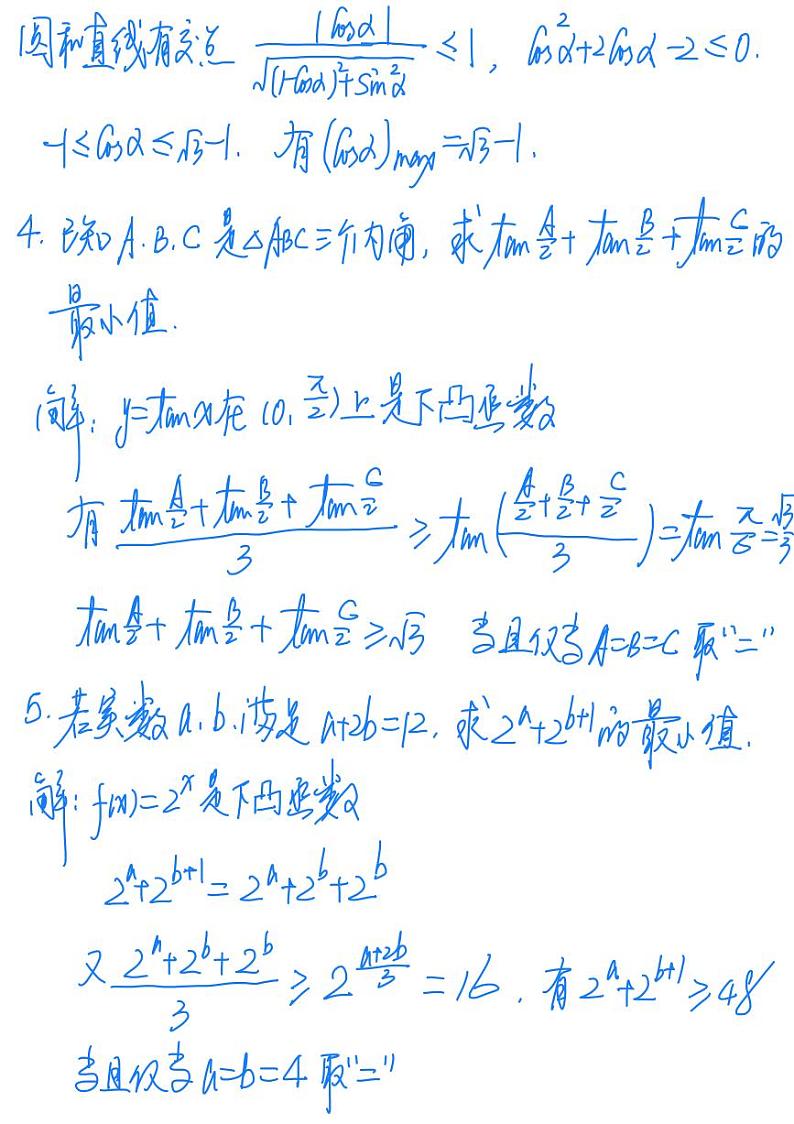 圆和直线有交点 |cosα|/√((1-cosα)²+sin²α) ≤1, cos²α+2cosα-2≤0.
-1≤cosα≤√3-1. 有(cosα)max=√3-1.
4. 已知A.B.C是△ABC三个内角, 求tan A/2 + tan B/2 + tan C/2 的
最小值.
解: y=tanx在(0, π/2)上是下凸函数
有 (tan A/2 + tan B/2 + tan C/2)/3 ≥ tan((A/2+B/2+C/2)/3)=tan π/6=√3/3
tan A/2 + tan B/2 + tan C/2 ≥√3 当且仅当A=B=C取"="
5. 若实数a.b.满足a+2b=12, 求2^a+2^(b+1)的最小值.
解: f(x)=2^x是下凸函数
2^a+2^(b+1)=2^a+2^b+2^b
又 (2^a+2^b+2^b)/3 ≥ 2^((a+2b)/3) =16. 有2^a+2^(b+1)≥48
当且仅当a=b=4取"="